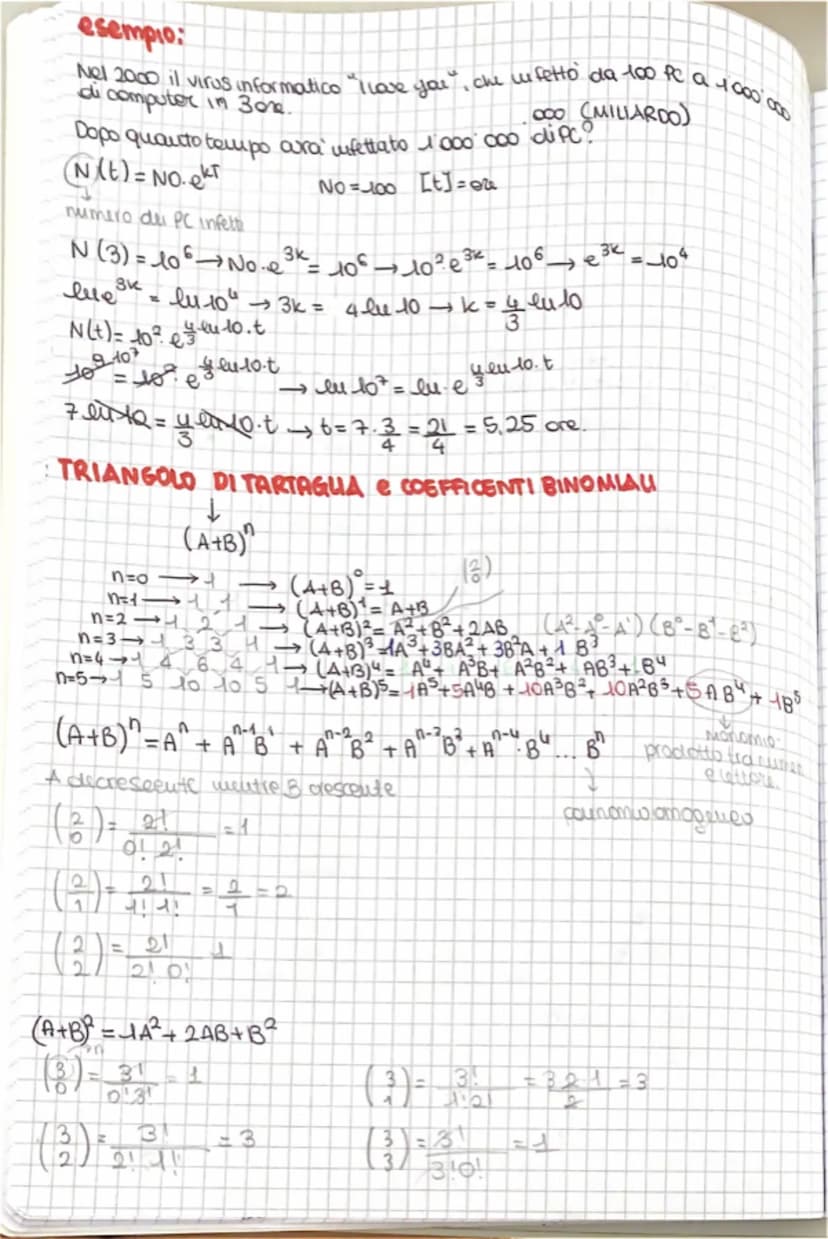 esempio:
Nel 2000 il virus informatico "I love you", che infettò da 100 PC a 1 000 000
di computer in 3 ore.
000 (MILIARDO)
Dopo quanto tempo avrà infettato 1 000 000 di PC?
N(t) = N0·e^kT N0=100 [t]=ore
numero dei PC infetti
N(3) = 10^6 → N0·e^3k = 10^6 → 10^2·e^3k = 10^6 → e^3k = 10^4
ln e^3k = ln 10^4 → 3k = 4 ln 10 → k = 4/3 ln 10
N(t) = 10^2·e^4/3 ln 10·t
10^9 10^7 = 10^2·e^4/3 ln 10·t → ln 10^7 = ln·e^4/3 ln 10·t
7 ln 10 = 4/3 ln 10·t → t = 7·3/4 = 21/4 = 5,25 ore.
TRIANGOLO DI TARTAGLIA e COEFFICENTI BINOMIALI
↓
(A+B)^n
n=0 → 1 → (A+B)^0 = 1 (2 0)
n=1 → 1 1 → (A+B)^1 = A+B
n=2 → 1 2 1 → (A+B)^2 = A^2+B^2+2AB (A^2-A^0-A^1) (B^0-B^1-B^2)
n=3 → 1 3 3 1 → (A+B)^3 = 1A^3+3BA^2+3B^2A+1 B^3
n=4 → 1 4 6 4 1 → (A+B)^4 = A^4+ A^3B+ A^2B^2+ AB^3+ B^4
n=5 → 1 5 10 10 5 1 → (A+B)^5 = 1A^5+5A^4B+10A^3B^2+10A^2B^3+5AB^4+1B^5
(A+B)^n = A^n + A^n-1 B^1 + A^n-2 B^2 + A^n-3 B^3 + A^n-4·B^4 ... B^n
monomio
prodotto tra numeri
e lettere.
A decrescente mentre B crescente
polinomio omogeneo
(2 0) = 2!/0! 2! = 1
(2 1) = 2!/1! 1! = 2/1 = 2
(2 2) = 2!/2! 0! 1
(A+B)^2 = 1A^2+2AB+B^2
(3 0) = 3!/0! 3! = 1 (3 1) = 3!/1! 2! = 3 2 1/2 = 3
(3 2) = 3!/2! 1! = 3 (3 3) = 3!/3! 0! = 1